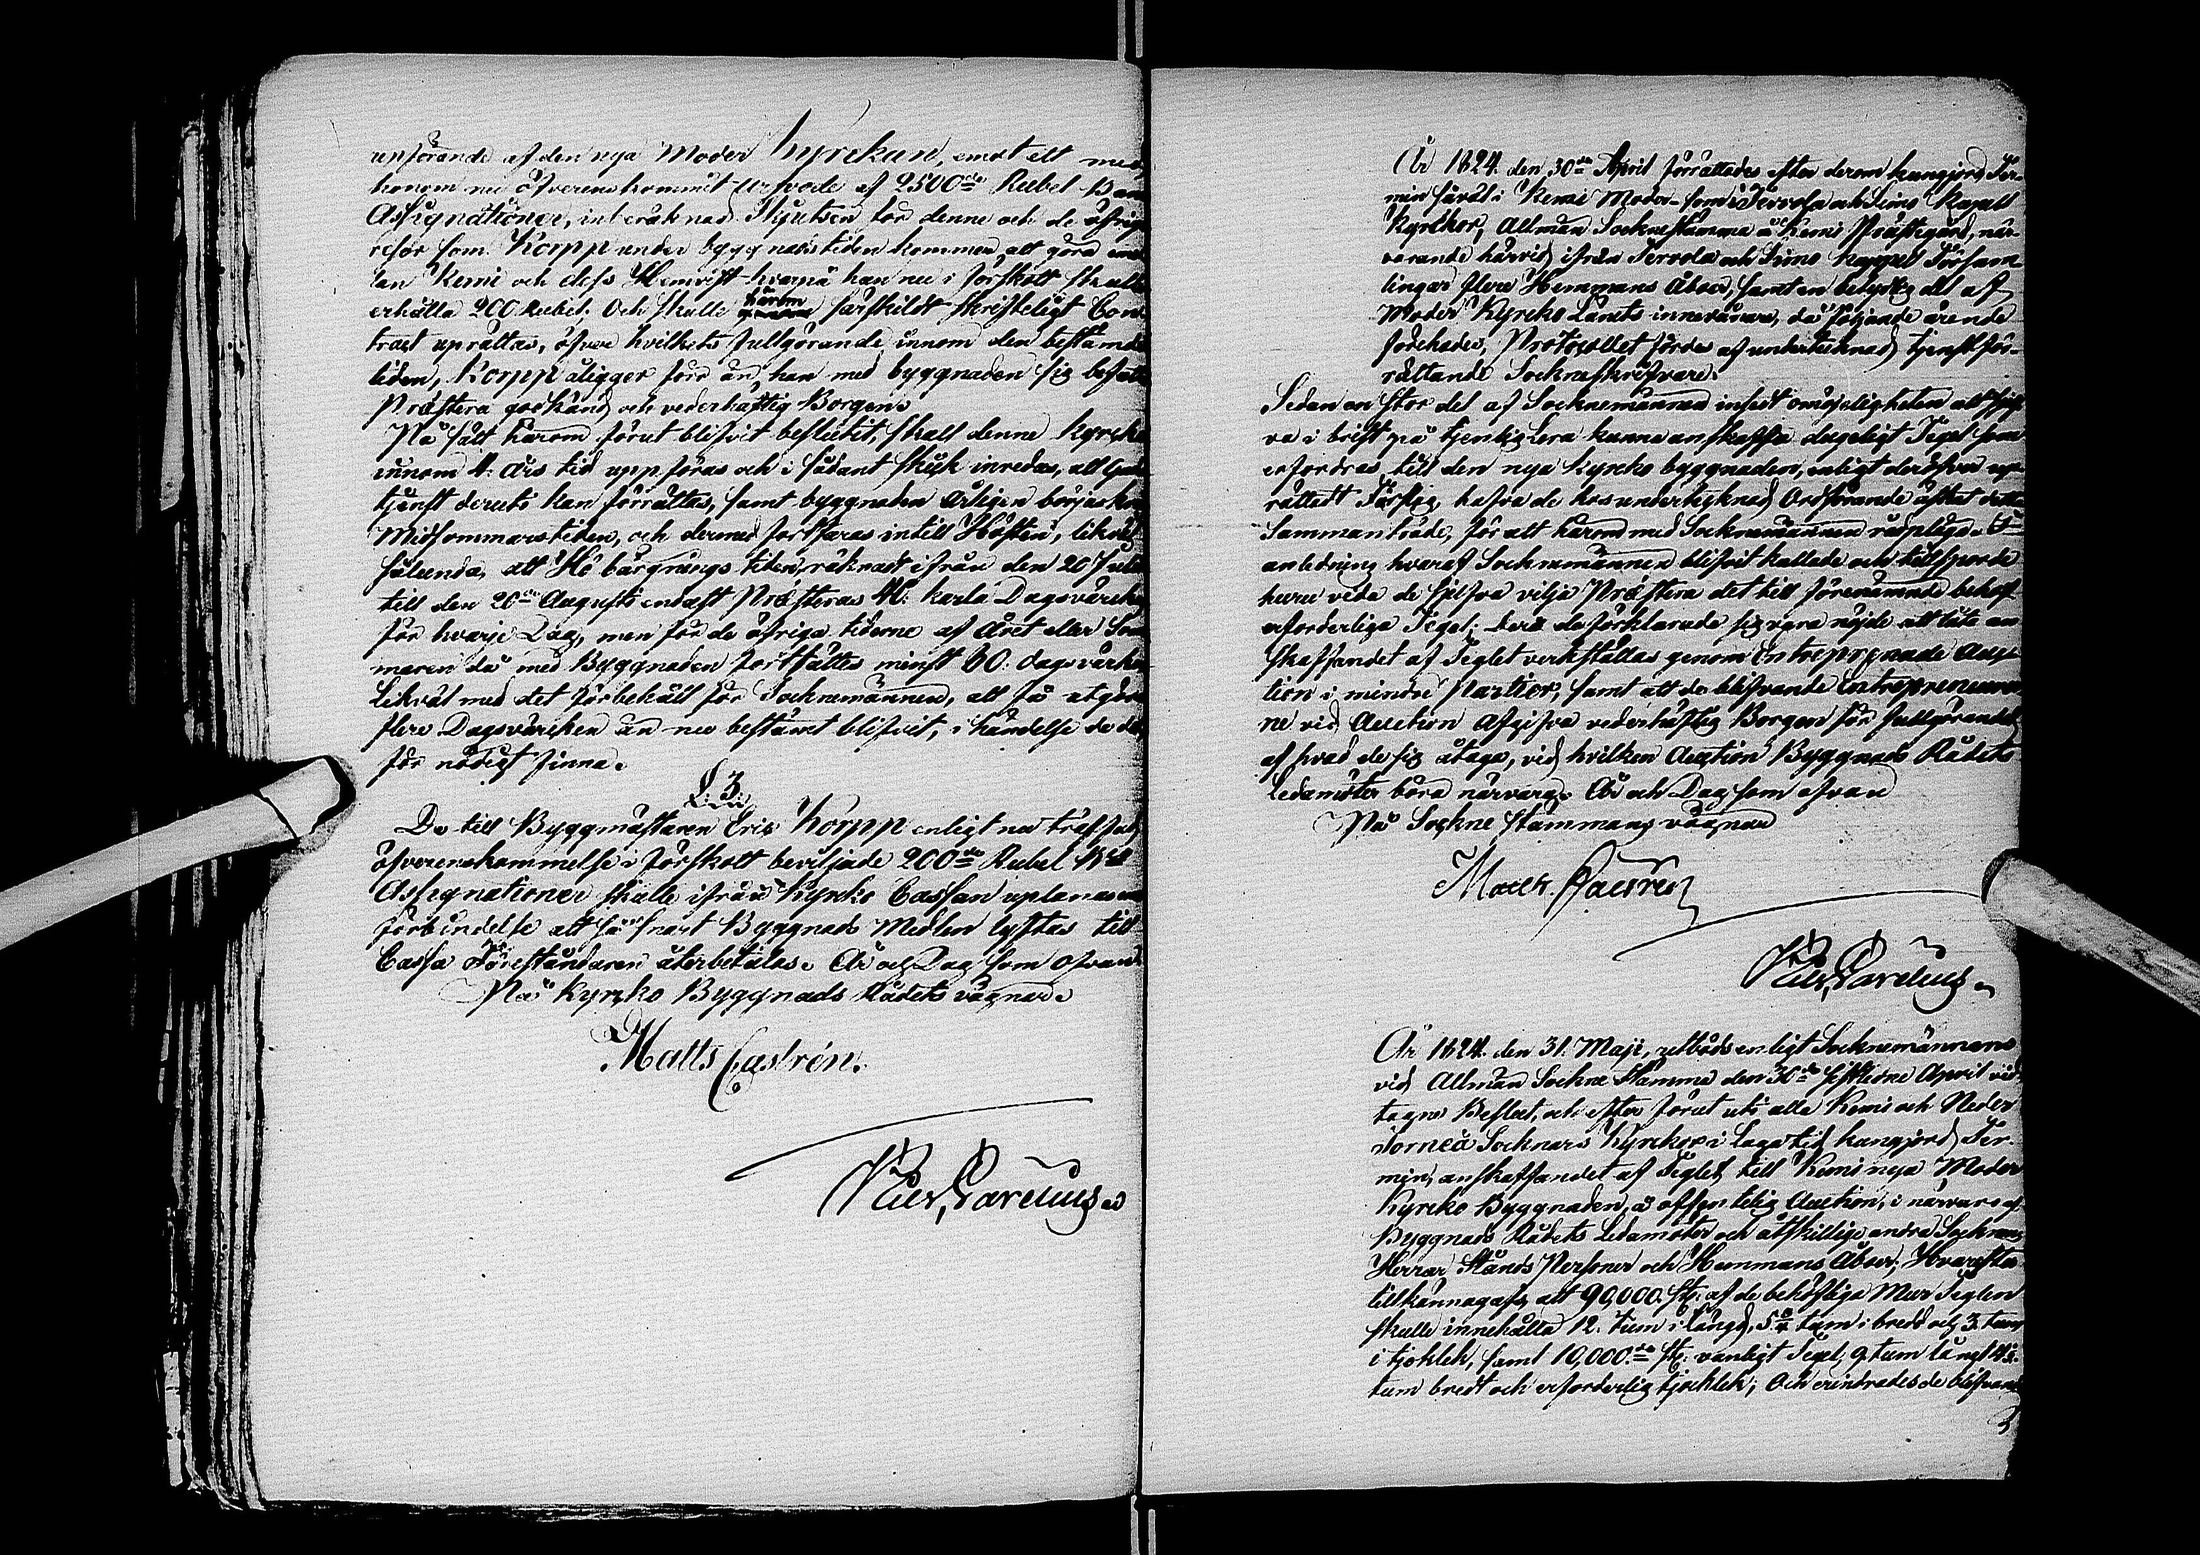 upförande af den nya Moder Kyrckan, emot ett med
honom nu öfverenskommit arfvode af 2500de Rubel Banco
Assignationer, inberäknad Skjutsen för denne och de öfrige
resor som Korpp under byggnadstiden kommer att göra emel
lan Kemi och dess Hemvist hvarpå han nu i förskott skulle
erhålla 200 Rubel; Och skulle härom särskildt skrifteligt Con
tract uprättas, öfver hvilkets fullgörande innom den bestämda
tiden, Korpp åligger förr än han med byggnaden sig befatta
Præstera godkänd och vederhäftig Borgen.
På sätt härom förut blifvit beslutit, skall denne Kyrcka
innom 4. Års tid uppföras och i sådant skick inredas, att Guds
tjenst deruti kan förrättas, samt byggnaden årligen börjas kring
Midsommarstiden, och dermed fortfaras intill Hösten, likväl
sålunda, att Hö bärgnings tiden, räknadt ifrån den 20 Julii
till den 20de Augusti endast Præsteras 40. karla Dagsvärcken
för hvarje Dag, men för de öfriga tiderne af Året eller Som
maren då med Byggnaden fortsättes minst 60. dagsvärken
likväl med det förbehåll för Socknemännen, att få utgöra
flere Dagsvärcken än nu bestämt blifvit, i händelse de det
för nödigt finna.
§. 3.
De till Byggmästaren Eric Korpp enligt nu träffad
öfverenskommelse i förskott beviljade 200de Rubel Bco
Assignationer skulle ifrån Kyrcko Cassan uplånas med
förbindelse att så snart Byggnads Medlen lyftas till
Cassa Föreståndaren återbetalas. År och Dag som ofvan.
På Kyrcko Byggnads Rådets vägnar.
Matts Castrén.
År 1824. den 30de April förrättades efter derom kungjord Ter-
min såväl i Kemi Moder- som i Tervola och Simo Kapell
Kyrckor, Allmän Sockne stämma å Kemi Prästegård, när-
varande härvid ifrån Tervola och Simo Kappel Församl-
lingar flere Hemmans Åboer, samt en betydlig del af
Moder Kyrcko Länets innevånare, då följande ärende
förehades, Protocollet fördes af undertecknad tjenstför-
rättande Socknskrifvare.
Sedan en stor del af Socknemännen insedt omöjeligheten att sjelf
ve i brist på tjenlig Lera kunna anskaffa dugeligt Tegel som
erfordras till den nya Kyrcko byggnaden, enligt deröfver up-
rättatt Förslag, hafva de hos undertecknad Ordförande äskat detta
Sammanträde, för att härom med Socknemännen rådpläga. I
anledning hvaraf Socknemännen blifvit kallade och tillsporde
huru vida de sjelfva vilja Præstera det till förenämnde behof
erforderliga Tegel; Dera de förklarade sig vara nöjde att låta an
skaffandet af Teglet verkställas genom Entreprenade Auc-
tion i mindre Partier, samt att de blifvande Entrepreneurer
ne vid Auction afgifva vederhäftig Borgen för fullgörandet
af hvad de sig åtaga, vid hvilken Auction Byggnads Rådets
Ledamöter böra närvara. År och Dag som ofvan
På Sockne stämmans vägnar
År 1824. den 31. Maji, utböds enligt Socknemännens
vid Allmän Sockne Stämma den 30de sistledne April vid-
tagne Beslut, och efter förut uti alle Kemi och Neder
Torneå Socknars Kyrckor i Laga tid kungjord Ter-
min, anskaffandet af Teglet till Kemi nya Moder
Kyrcko Byggnaden, å offentelig Auction, i närvaro af
Byggnads Rådets Ledamöter och åtskillige andre Socknens
Herrar Stånds Personer och Hemmans Åboer; Hvarefter
tillkännagafs, att 90,000. st. af de behöflige Mur Teglen
skulle innehålla 12. tum i längd, 5 3/4 tum i bredd och 3. tum
i tjoklek, samt 10,000.de st. vanligt Tegel, 9. tum långt 4½.
tum bredt och erforderlig tjocklek; Och erindrades de blifvande